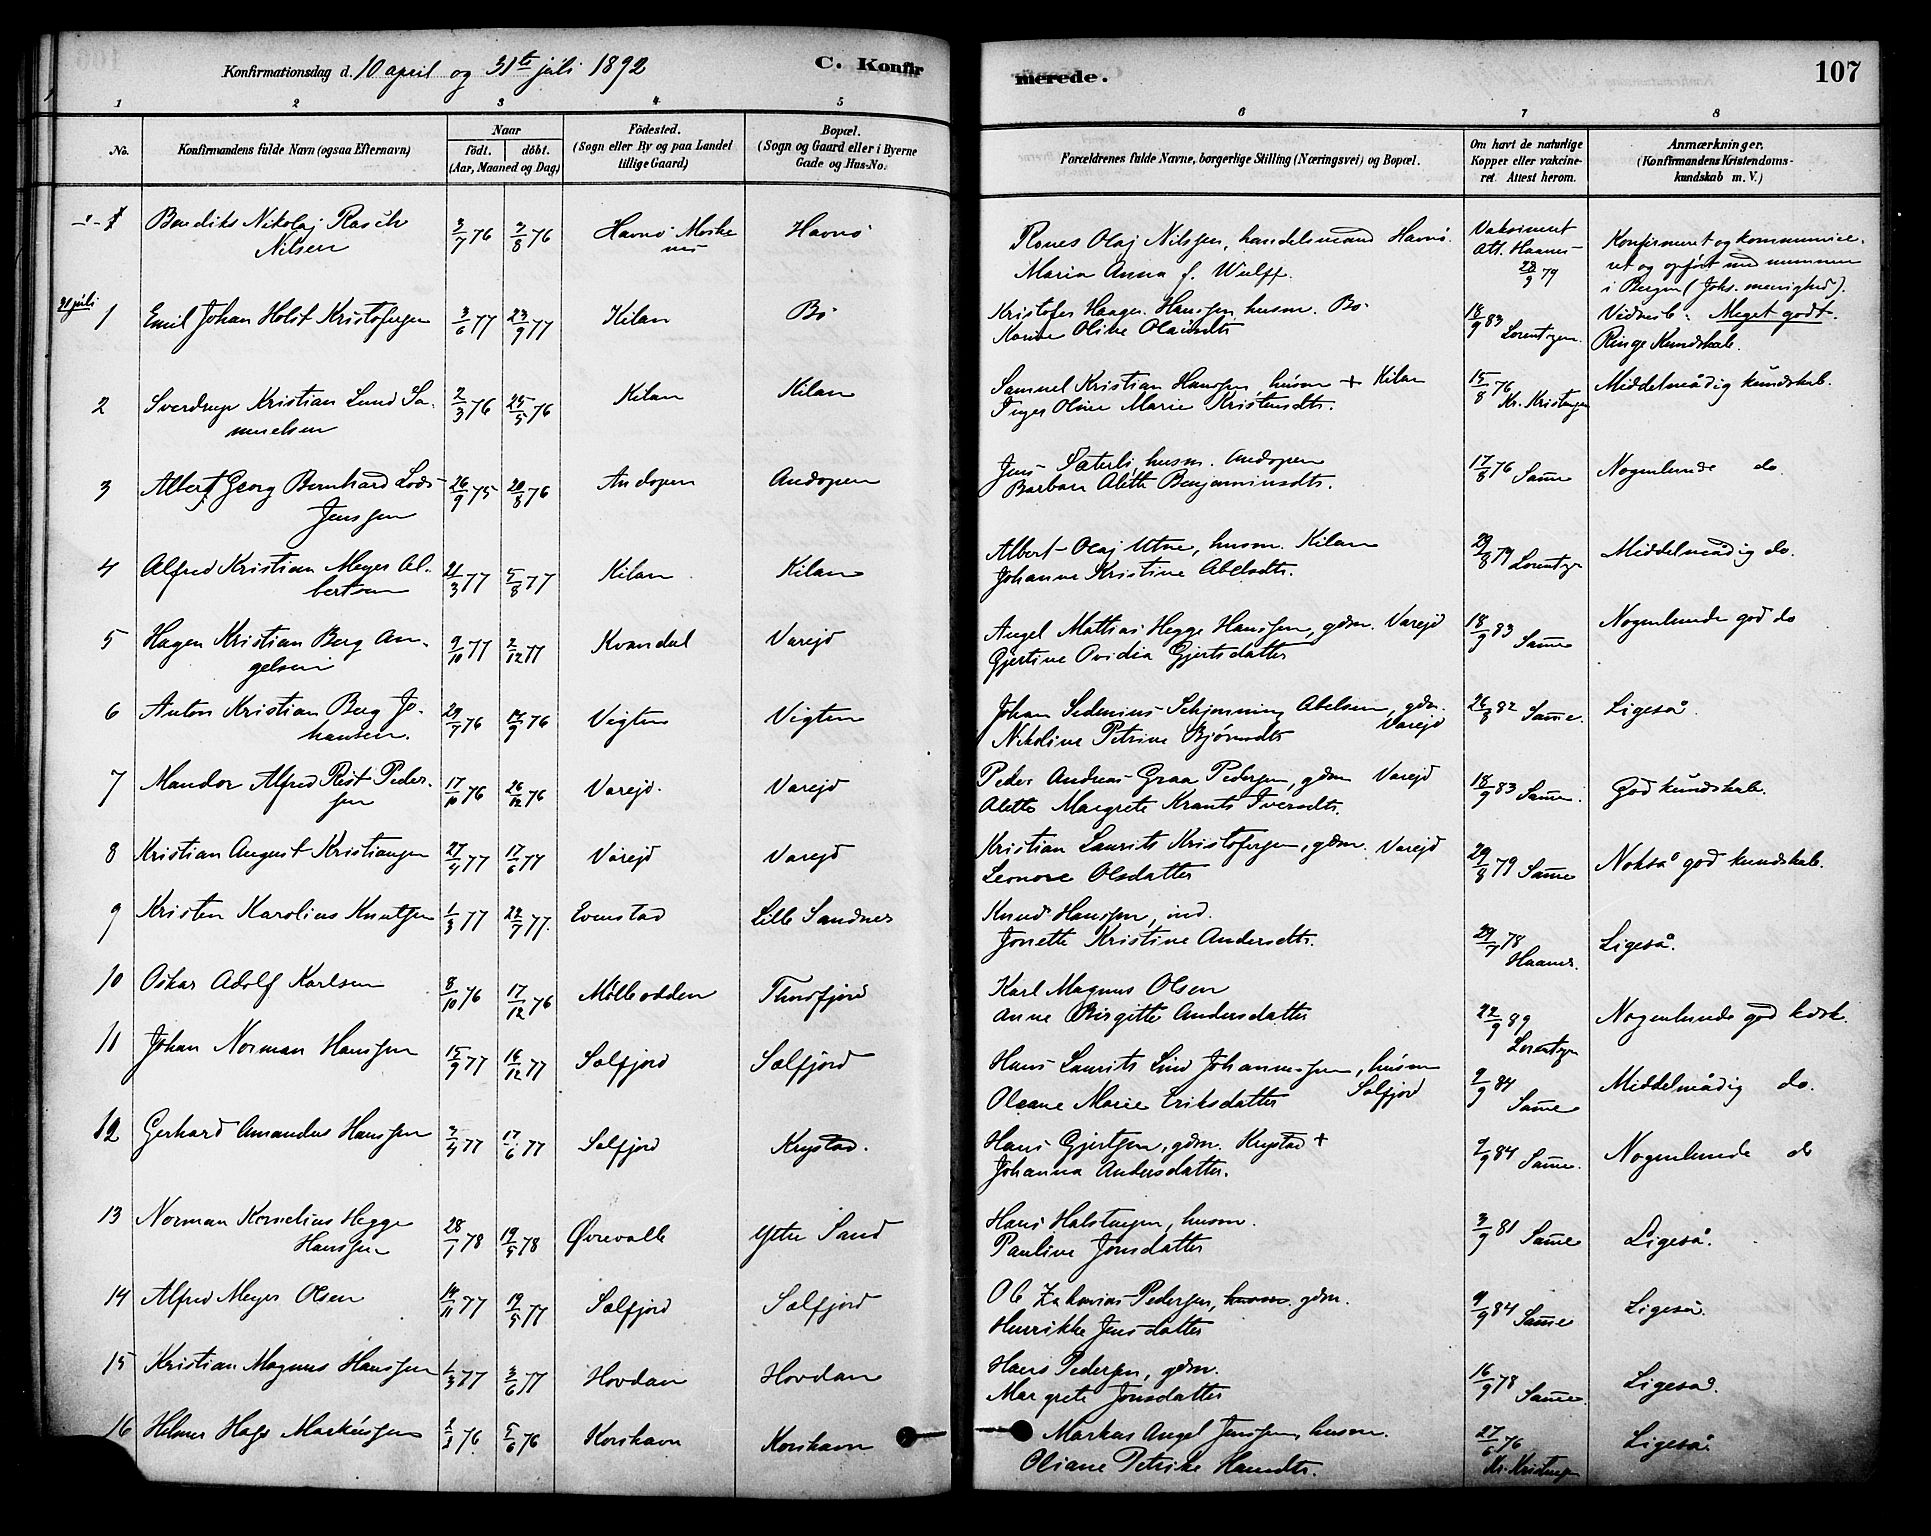 Konfirmationsdag d. 10 april og 31te juli 1892
C. Konfir
merede.
107
1 2 3 4 5 6 7 8
No.
Konfirmandens fulde Navn (ogsaa Efternavn)
Naar
födt. döbt.
(Aar, Maaned og Dag)
Födested.
(Sogn eller By og paa Landet
tillige Gaard)
Bopæl.
(Sogn og Gaard eller i Byerne
Gade og Hus-No.
Forældrenes fulde Navne, borgerlige Stilling (Næringsvei) og Bopæl.
Om havt de naturlige
Kopper eller vakcine-
ret. Attest herom.
Anmærkninger.
(Konfirmandens Kristendoms-
kundskab m. V.)
Bendiks Nikolaj Rasch 3/7 76 3/8 76 Havnø Moske Havnø
Nilsen nes
Rones Olaj Nilssen, handelsmand Havnø. Vaksineret
Maria Anna f. Wulff. Att. Haanes 79
Konfirmeret og kommunice-
ret og opført med nummer
i Bergen (Johs. menighed).
31 juli
1 Emil Johan Holst Kristofersen 3/6 77 23/9 77 Kilan Bø
Kristofer Haager Hanssen husm. Bø 18/9 83 Vidnesb: Meget godt.
Oline Lorentzen. Ringe Kundskab.
2 Sverdrup Kristian Lund Sa- 2/3 76 25/5 76 Kilan Kilan
muelsen
Samuel Kristian Hanssen, husm + Kilan 15/8 76 Middelmådig kundskab.
Inger Oline Marie Kristensdtr. Kr. Kristensen
3 Albert Georg Bernhard Lods- 26/9 75 20/8 76 Andopen Andopen
Jenssen
Jens Sæterli, husm. Andopen 17/8 76 Samme Nogenlunde do.
Barbara Alette Benjaminsdtr.
4 Alfred Kristian Meyer Al- 21/3 77 5/8 77 Kilan Kilan
bertsen
Albert Olaj Utne, husm. Kilan 29/8 79 Lorentzen Middelmådig do.
Johanne Kristine Abelsdtr.
5 Hagen Kristian Berg An- 9/10 77 2/12 77 Kvandal Varejd
gelsen
Angel Mathias Hegge Hanssen, gdm. Varejd 18/9 83 Samme Nogenlunde god do
Gjertine Ovidia Gjertsdatter
6 Anton Kristian Berg Jo- 29/7 76 /9 76 Vigten Vigten
hansen.
Johan Sedenius Schjønning Abelsen, gdm. 26/8 82 Samme. Ligeså.
Nikoline Petrine Bjørnsdtr Varejd
7 Mandor Alfred Rist Peder- 17/10 76 26/12 76 Varejd. Varejd
sen
Peder Andreas Graa Pedersen, gdm Varejd 18/9 83 Samme. God kundskab.
Alette Margrete Krants Iversdtr.
8 Kristian August Kristiansen 27/4 77 17/6 77 Varejd Varejd
Kristian Laurits Kristofersen, gdm. Varejd 29/8 79 Samme Nokså god kundskab.
Leonore Olsdatter
9 Kristen Karolius Knutsen 1/3 77 22/7 77. Evenstad Lille Sandnes
Knud Hanssen, ind.
Jonette Kristine Andersdtr. 29/7 78 Haanes. Ligeså.
10 Oskar Adolf Karlsen 8/10 76 17/12 76 Mølleodden Thorsfjord
Karl Magnus Olsen
Anne Birgitte Andersdatter 22/9 89 Lorentzen Nogenlunde god kdsk.
11 Johan Norman Hanssen 15/9 77 16/12 77 Solfjord Solfjord
Hans Laurits Lind Johannessen, husm 2/9 84 Samme Middelmådig do.
Oleane Marie Eriksdatter Solfjord
12 Gerhard Amandus Hanssen 3/4 77 17/6 77 Solfjord Krystad.
Hans Gjertsen, gdm. Krystad + 2/9 84 Samme. Nogenlunde do
Johanna Andersdatter.
13 Norman Kornelius Hegge 28/1 78 19/5 78 Ørevalle Ytter Sand
Hanssen
Hans Halstensen, husm. 3/9 81 Samme Ligeså.
Pauline Jonsdatter
14 Alfred Meyer Olsen 14/11 77 19/5 77 Solfjord Solfjord
Ole Zakarias Pedersen, husm. gdm. 9/9 84 Samme Ligeså.
Henrikke Jensdatter
15 Kristian Magnus Hanssen 1/3 77 3/6 77 Hovdan Hovdan
Hans Pedersen, gdm. 16/9 78 Samme. Ligeså.
Margrete Jonsdatter
16 Helmer Hage Markussen 76 5/6 76 Korshavn Korshavn
Markus Angel Jenssen, husm. 27/6 76 Ligeså.
Oliane Petrike Hansdtr. Kr. Kristensen